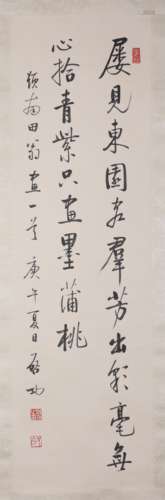 屡見東園富羣芳出彩毫無
心拾青紫只畫墨蒲桃
題南田翁畫一首 庚午夏日 啟功